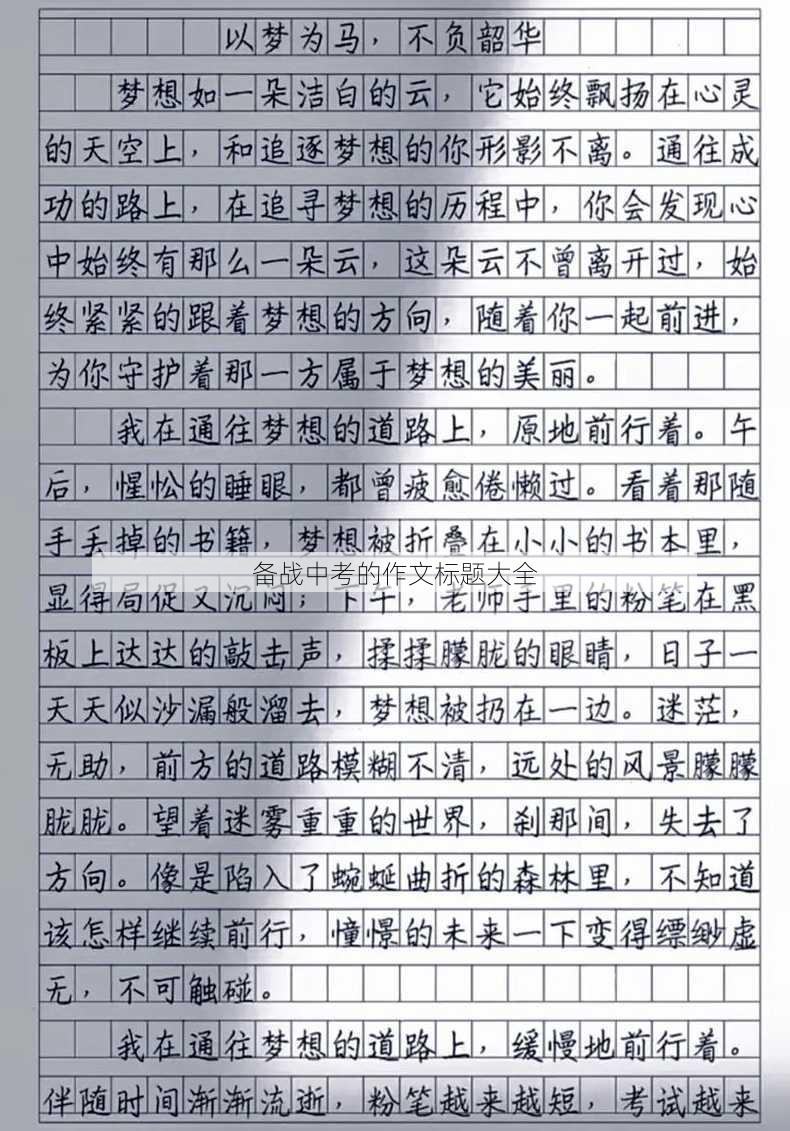 以梦为马，不负韶华
梦想如一朵洁白的云，它始终飘扬在心灵
的天空上，和追逐梦想的你形影不离。通往成
功的路上，在追寻梦想的历程中，你会发现心
中始终有那么一朵云，这朵云不曾离开过，始
终紧紧的跟着梦想的方向，随着你一起前进，
为你守护着那一方属于梦想的美丽。
我在通往梦想的道路上，原地前行着。午
后，惺忪的睡眼，都曾疲愈倦懒过。看着那随
手丢掉的书籍，梦想被折叠在小小的书本里，
备战中考的作文标题大全
显得局促又沉闷；下午，老师手里的粉笔在黑
板上达达的敲击声，揉揉朦胧的眼睛，日子一
天天似沙漏般溜去，梦想被扔在一边。迷茫，
无助，前方的道路模糊不清，远处的风景朦朦
胧胧。望着迷雾重重的世界，刹那间，失去了
方向。像是陷入了蜿蜒曲折的森林里，不知道
该怎样继续前行，憧憬的未来一下变得缥缈虚
无，不可触碰。
我在通往梦想的道路上，缓慢地前行着。
伴随时间渐渐流逝，粉笔越来越短，考试越来